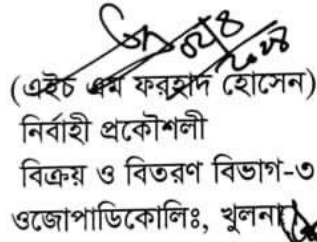 (এইচ এম ফরহাদ হোসেন)
নির্বাহী প্রকৌশলী
বিক্রয় ও বিতরণ বিভাগ-৩
ওজোপাডিকোলিঃ, খুলনা